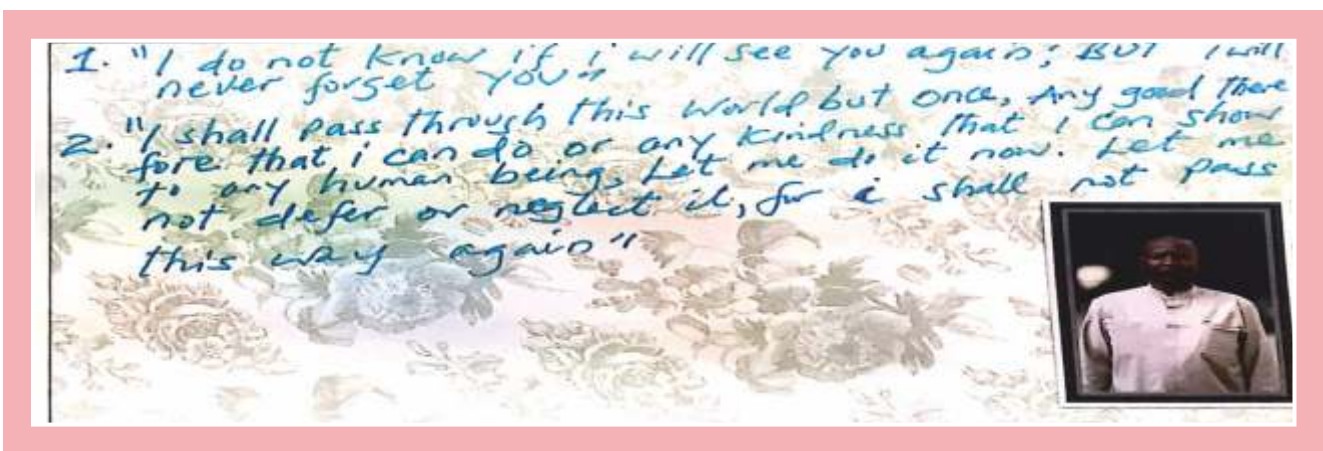 1. "I do not know if i will see you again; BUT I will
never forget YOU"
2. "I shall pass through this world but once, Any good there
fore that i can do or any kindness that I can show
to any human being, Let me do it now. Let me
not defer or neglect it, for i shall not pass
this way again"